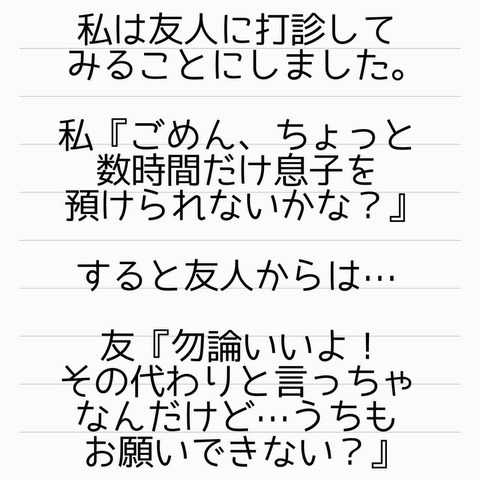 私は友人に打診して
みることにしました。
私『ごめん、ちょっと
数時間だけ息子を
預けられないかな？』
すると友人からは…
友『勿論いいよ！
その代わりと言っちゃ
なんだけど…うちも
お願いできない？』